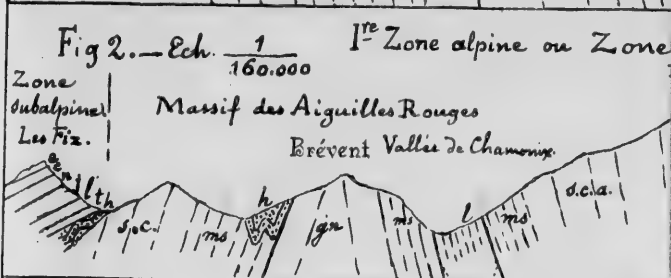 Fig 2. — Ech. 1/160.000 Ire Zone alpine ou Zone
Zone
subalpine
Les Fiz.
Massif des Aiguilles Rouges
Brévent Vallée de Chamonix.
j l t h
s.c.
ms
h
gn
ms
l
ms
s.c.a.